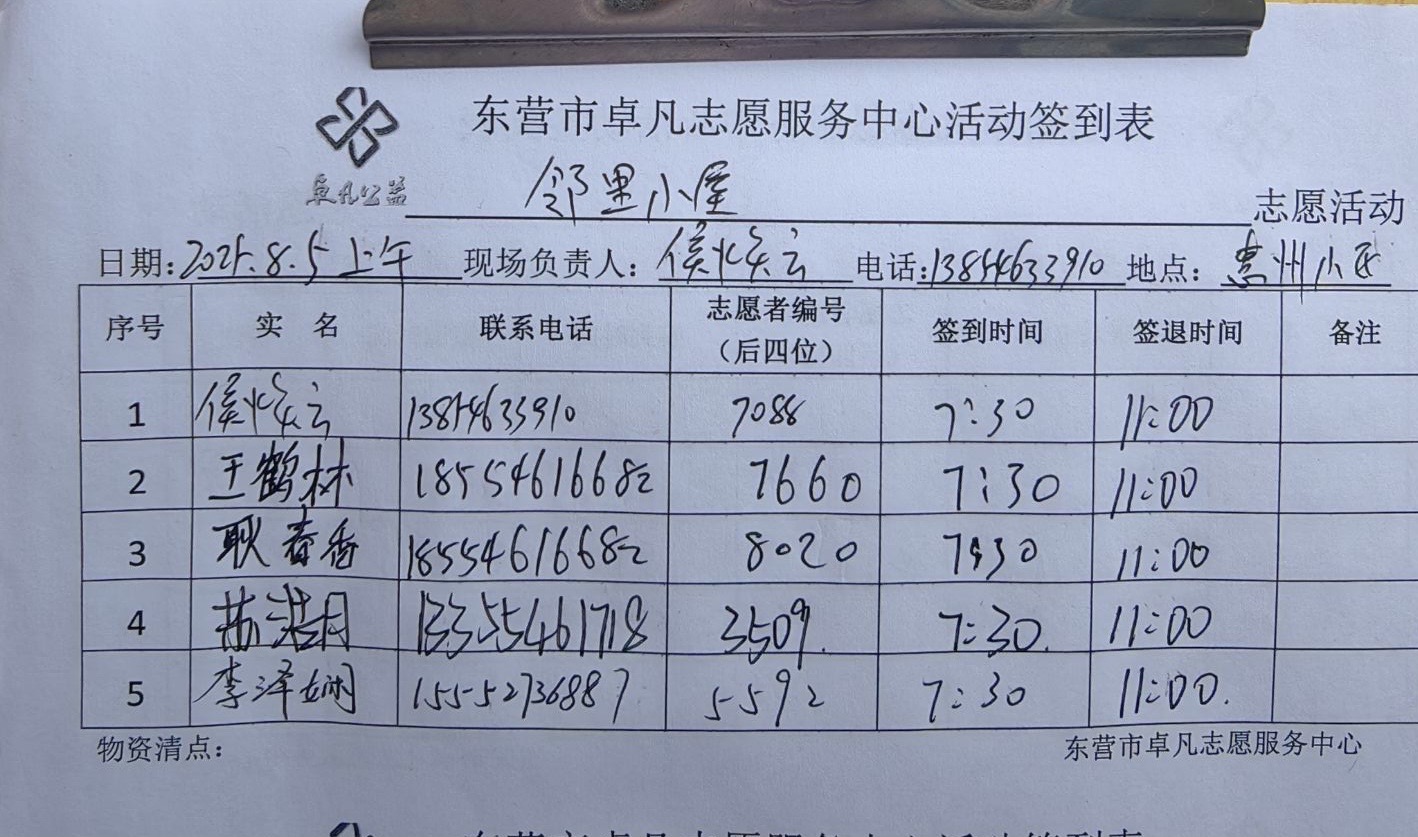 东营市卓凡志愿服务中心活动签到表
卓凡公益
邻里小屋 志愿活动
日期:2025.8.5上午 现场负责人:侯 云 电话:13854633910 地点:惠州小区
序号 实 名 联系电话 志愿者编号（后四位） 签到时间 签退时间 备注
1 侯 云 13854633910 7088 7:30 11:00
2 王鹤林 18554616682 7660 7:30 11:00
3 耿春香 18554616682 8020 7:30 11:00
4 苏浩月 13355461718 3509. 7:30. 11:00
5 李泽娴 15552736887 5592 7:30 11:00.
物资清点: 东营市卓凡志愿服务中心